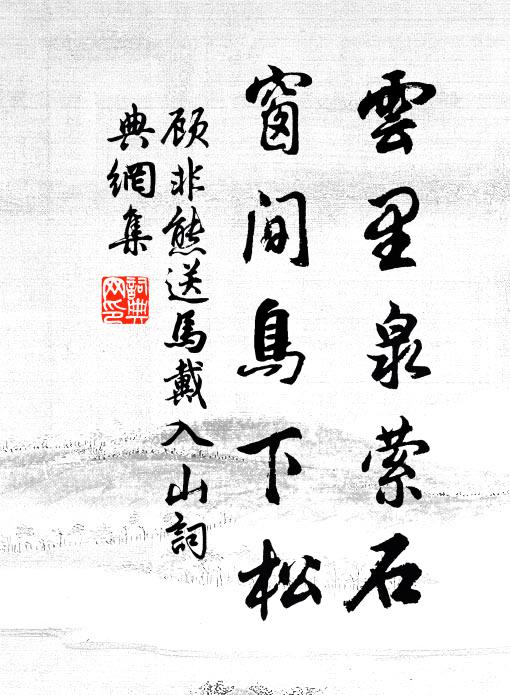 雲里泉萦石
窗间鳥下松
顾非熊送馬戴入山詞
典網集
詞典网印